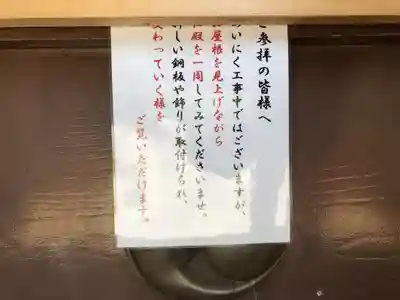 ご参拝の皆様へ
いにく工事中ではございますが、
屋根を見上げながら
殿を一周してみてくださいませ。
しい銅板や飾りが取付けられ、
変わっていく様を
ご覧いただけます。